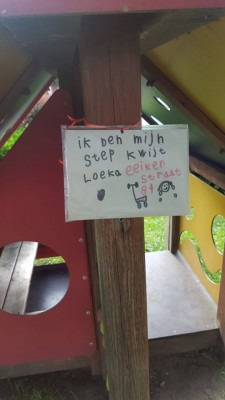 ik ben mijn
step kwijt
Loeka eeiken
straat
81